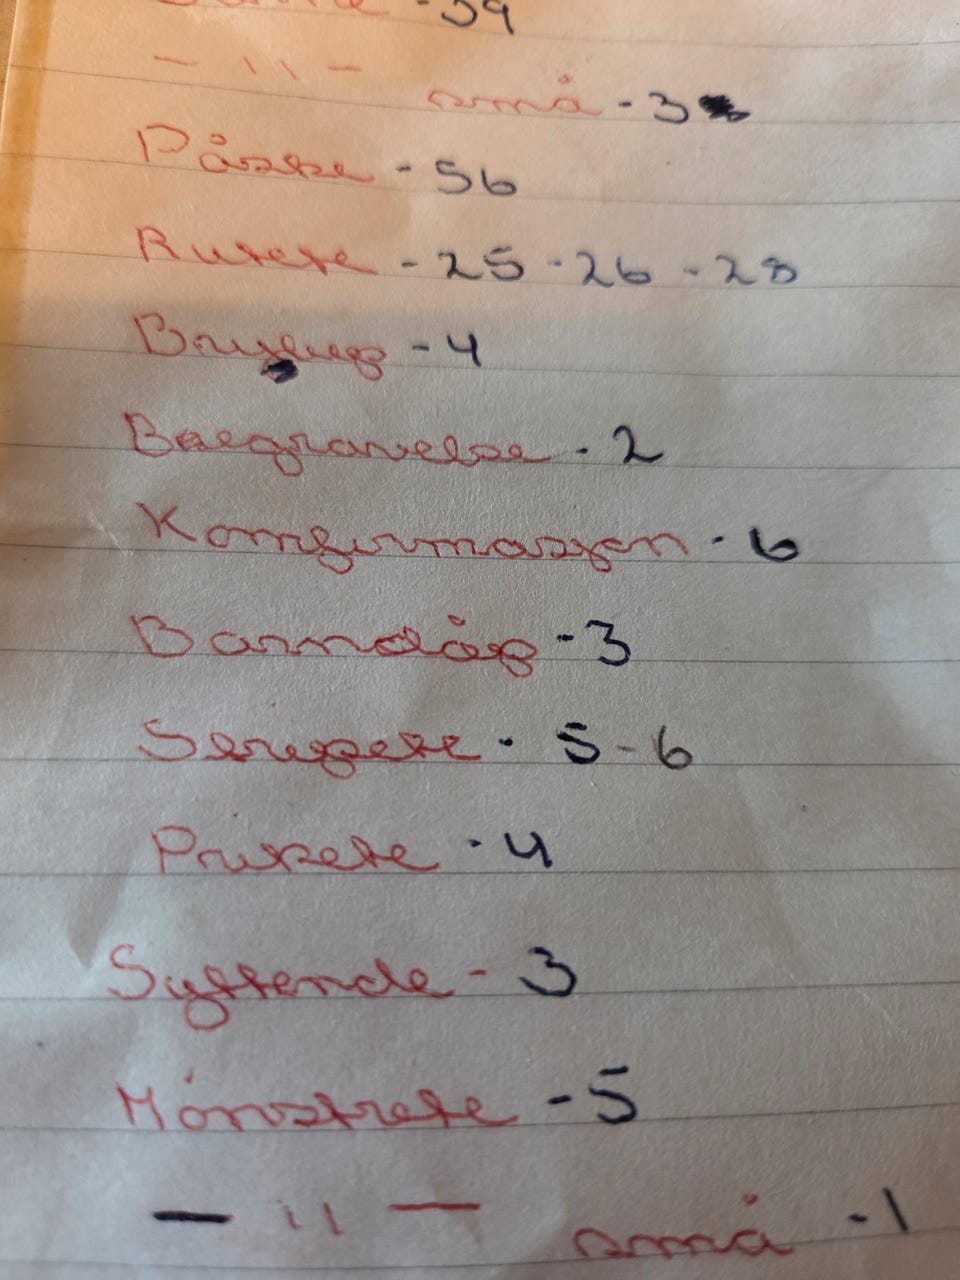 - 39
- " - små - 3
Påske - 56
Rutete - 25 - 26 - 28
Bryllup - 4
Baegravelse - 2
Komfirmasjon - 6
Barndåp - 3
Stripete - 5 - 6
Prikete - 4
Syttende - 3
Mönstrete - 5
- " - små - 1